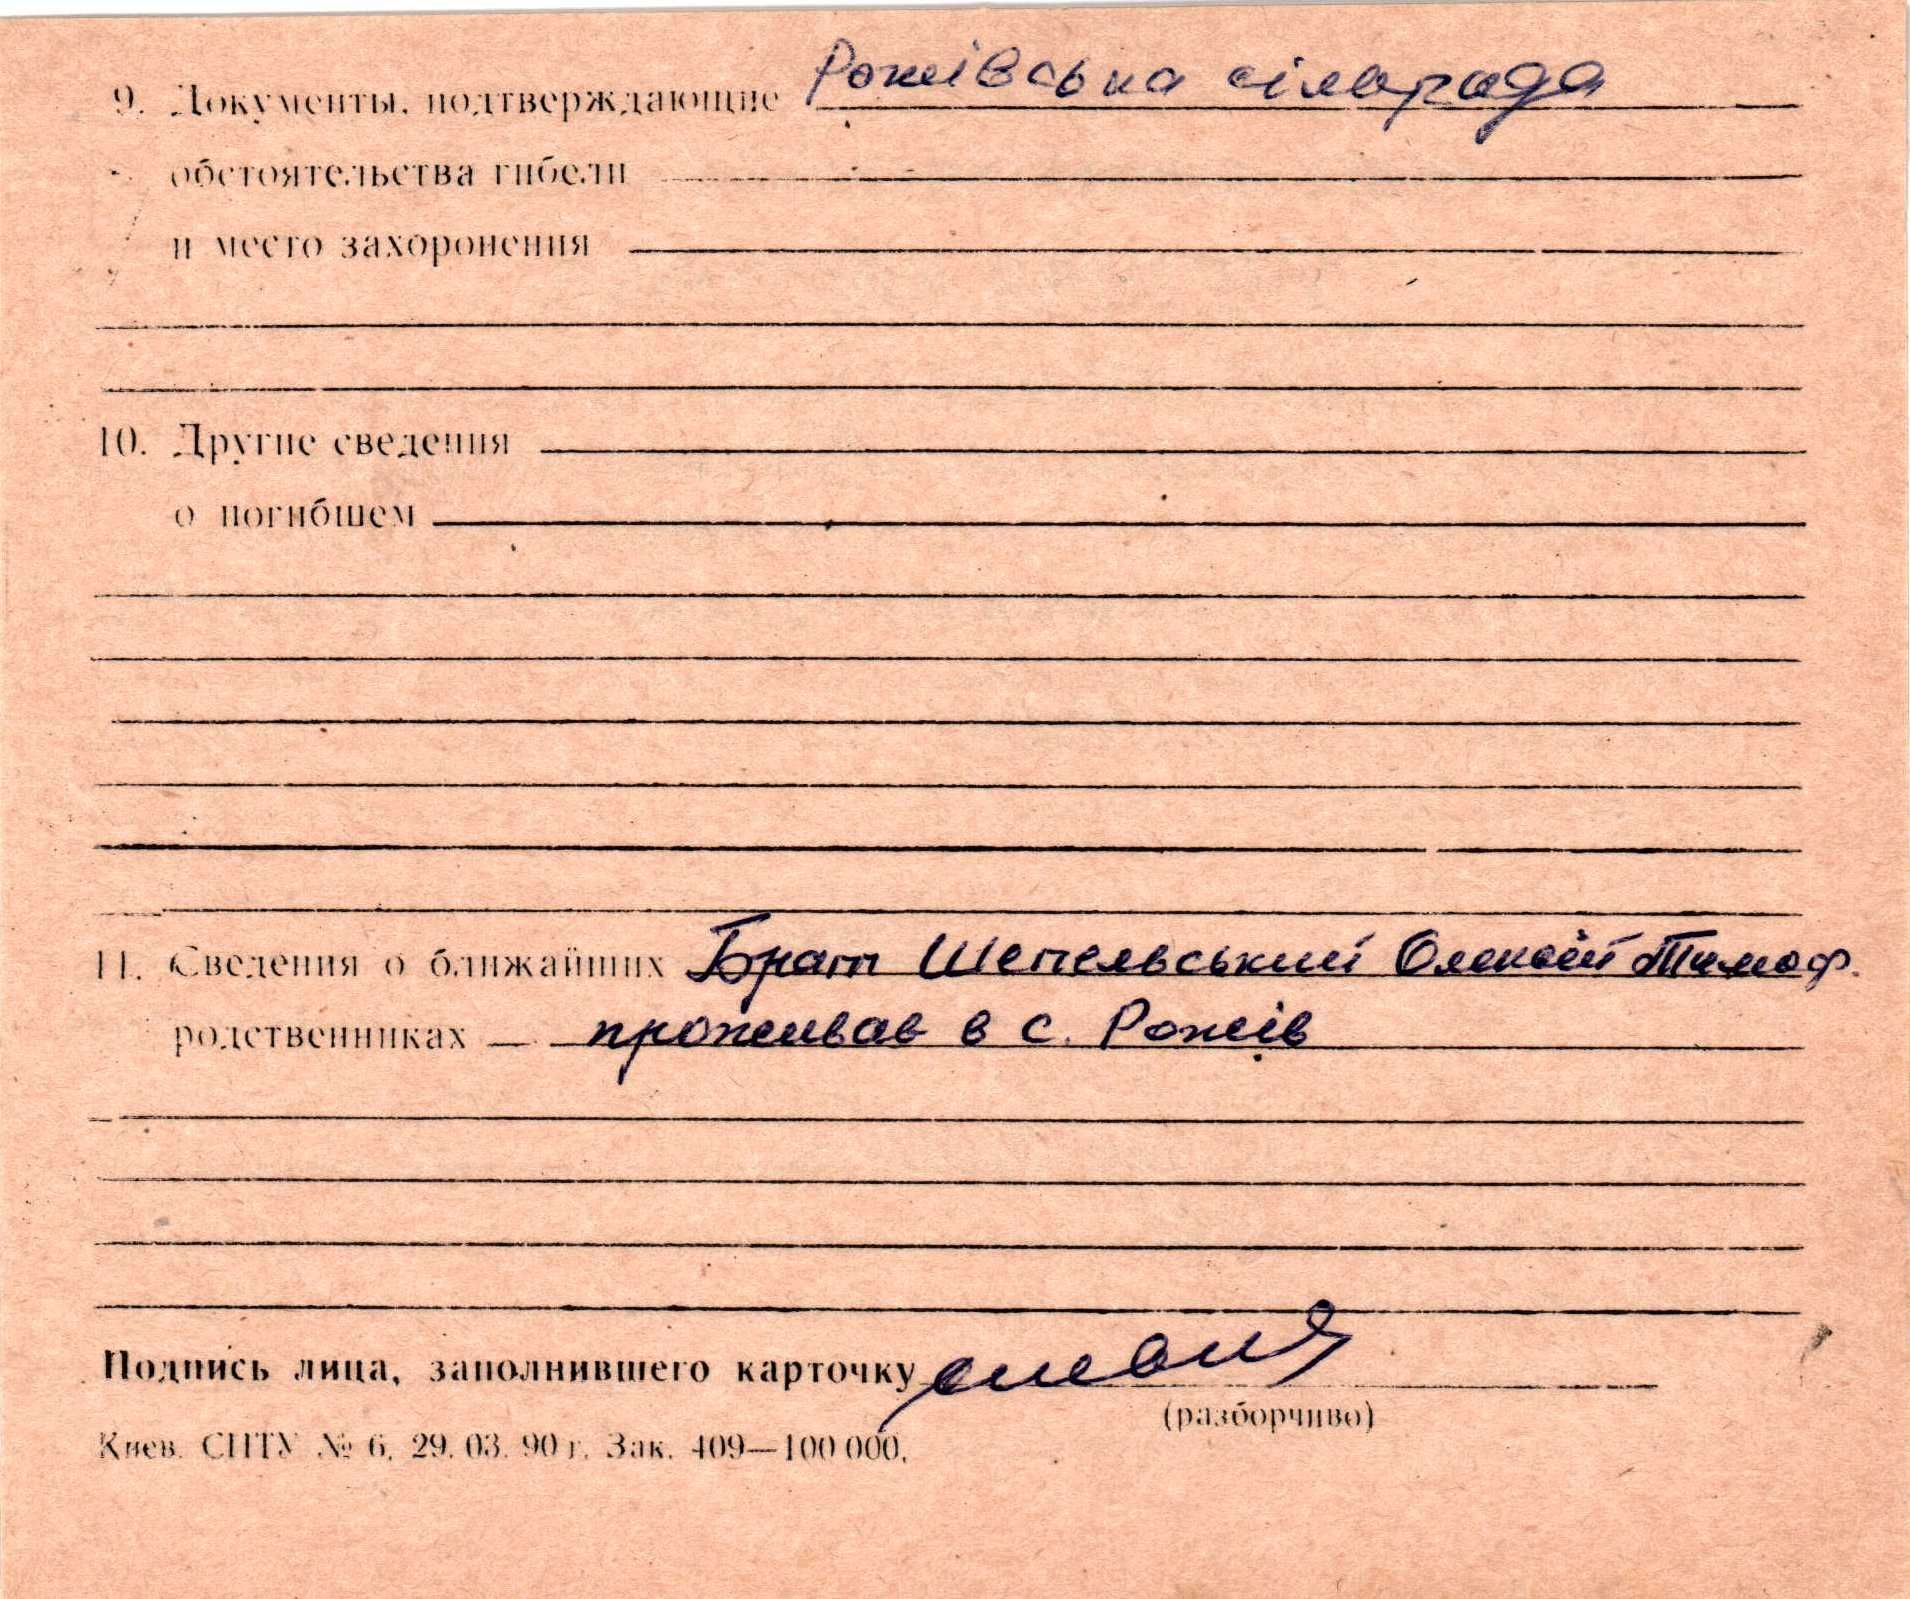 9. Документы, подтверждающие Рожівська сільрада
обстоятельства гибели
и место захоронения
10. Другие сведения
о погибшем
11. Сведения о ближайших Брат Шепелявський Олексій Тимоф.
родственниках проживав в с. Рожів
Подпись лица, заполнившего карточку
(разборчиво)
Киев. СПТУ № 6, 29. 03. 90 г. Зак. 409—100 000.